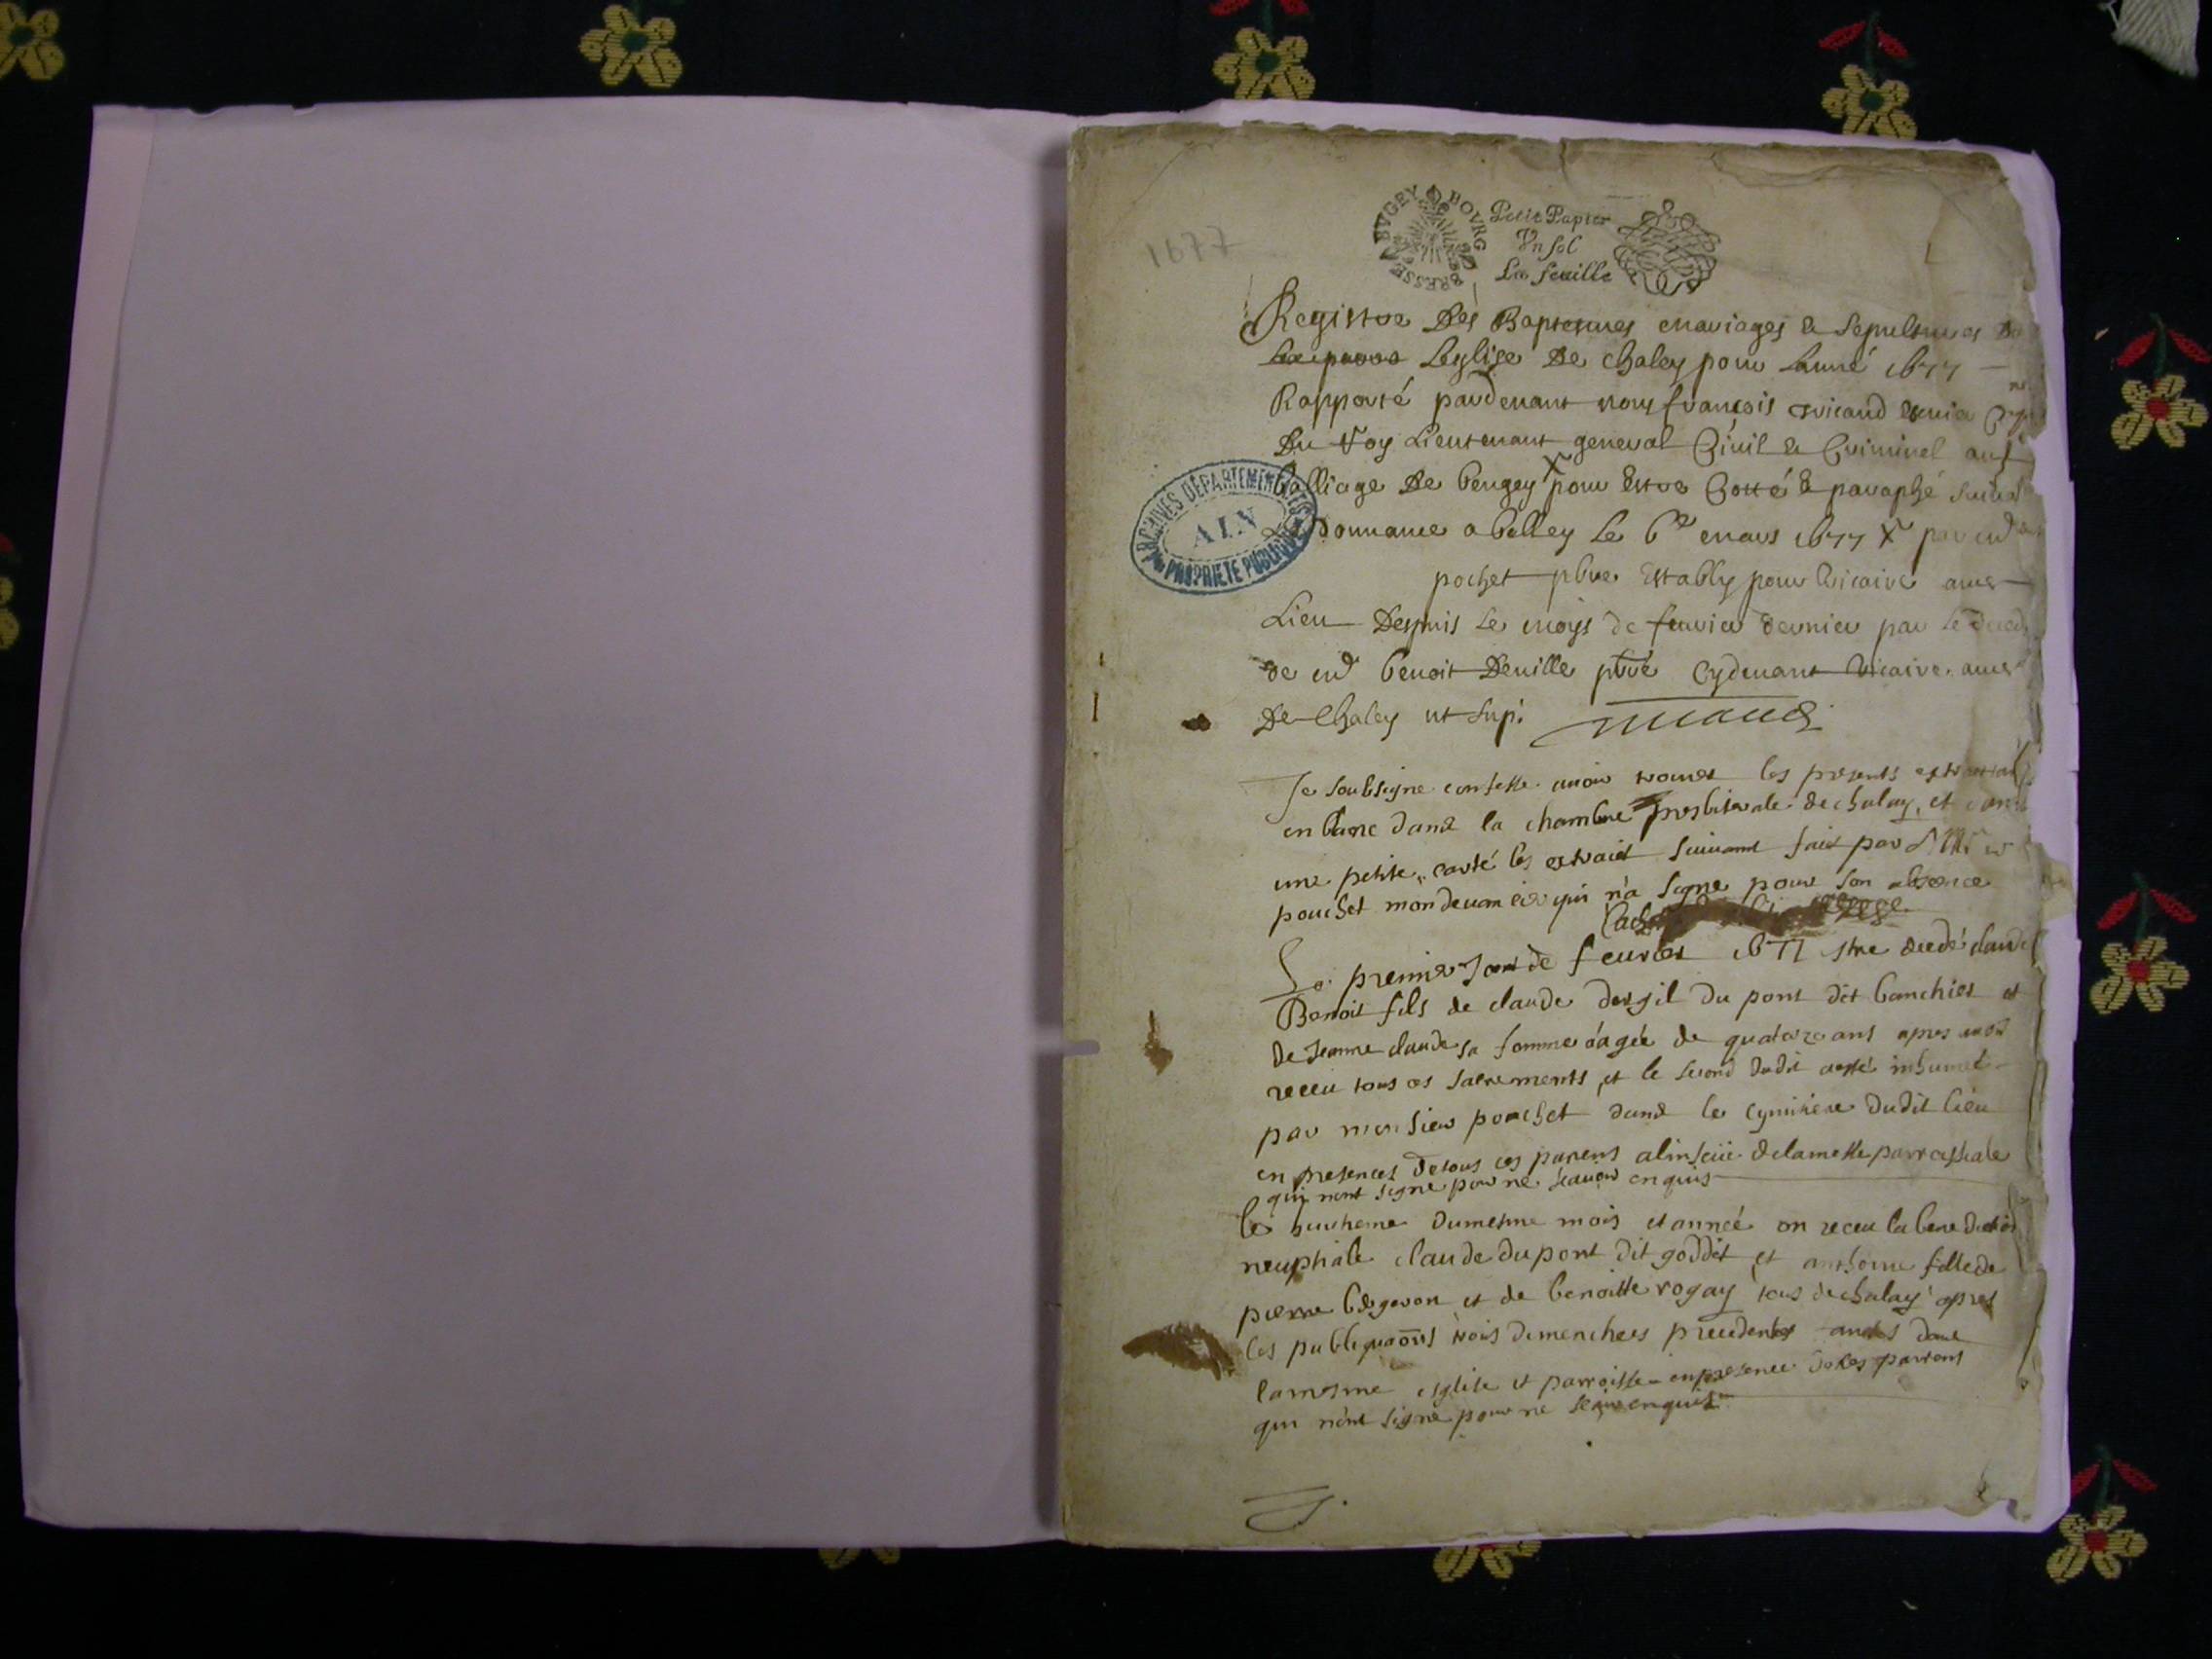 1677
BUGEY BOURG BRESSE
Petit Papier
Vn sol
La feuille
Registre Des Baptesmes mariages & sepultures De
Leglise De chaley pour Lanné 1677
Rapporté pardevant nous françois
Du Roy Lieutenant general Civil & Criminel au
balliage De beugey pour Estre Cotté & paraphé
a belley Le 6e mars 1677 par
pochet pbre Estably pour Vicaire
Lieu Despuis Le moys de fevrier dernier par Le
de benoit Deville pbre Cydevant Vicaire
De Chaley ut sup.
ARCHIVES DÉPARTEMENTALES
AIN
PROPRIÉTÉ PUBLIQUE
Je soubsigne confesse avoir trouver les presents
en blanc dans la chambre presbiterale de chaley, et
une petite carté les extrait suivant fait par
pouchet mon devancier qui n'a signe pour son absence
Le premier Jour de feuvrier 1677 decedé claude
Benoit fils de claude du pont dit banchiet et
de Jeanne claude sa femme aâgée de quatorze ans apres avoir
receu tous ces sacrements, et le second dudit inhumet
par monsieur pouchet dans le cymitiere dudit lieu
en presences de tous ces parens de la messe parrochiale
qui nont signe pour ne scavoir enquis
le du mesme mois et année on receu la benediction
neuptiale claude du pont dit goddet et anthoine fille de
pierre bergeron et de benoitte rogay tous de chalay apres
les publiquaons trois dimenches precedentes dans
la mesme esglise et parroisse en presence de les parrens
qui n'ont signe pour ne enquis